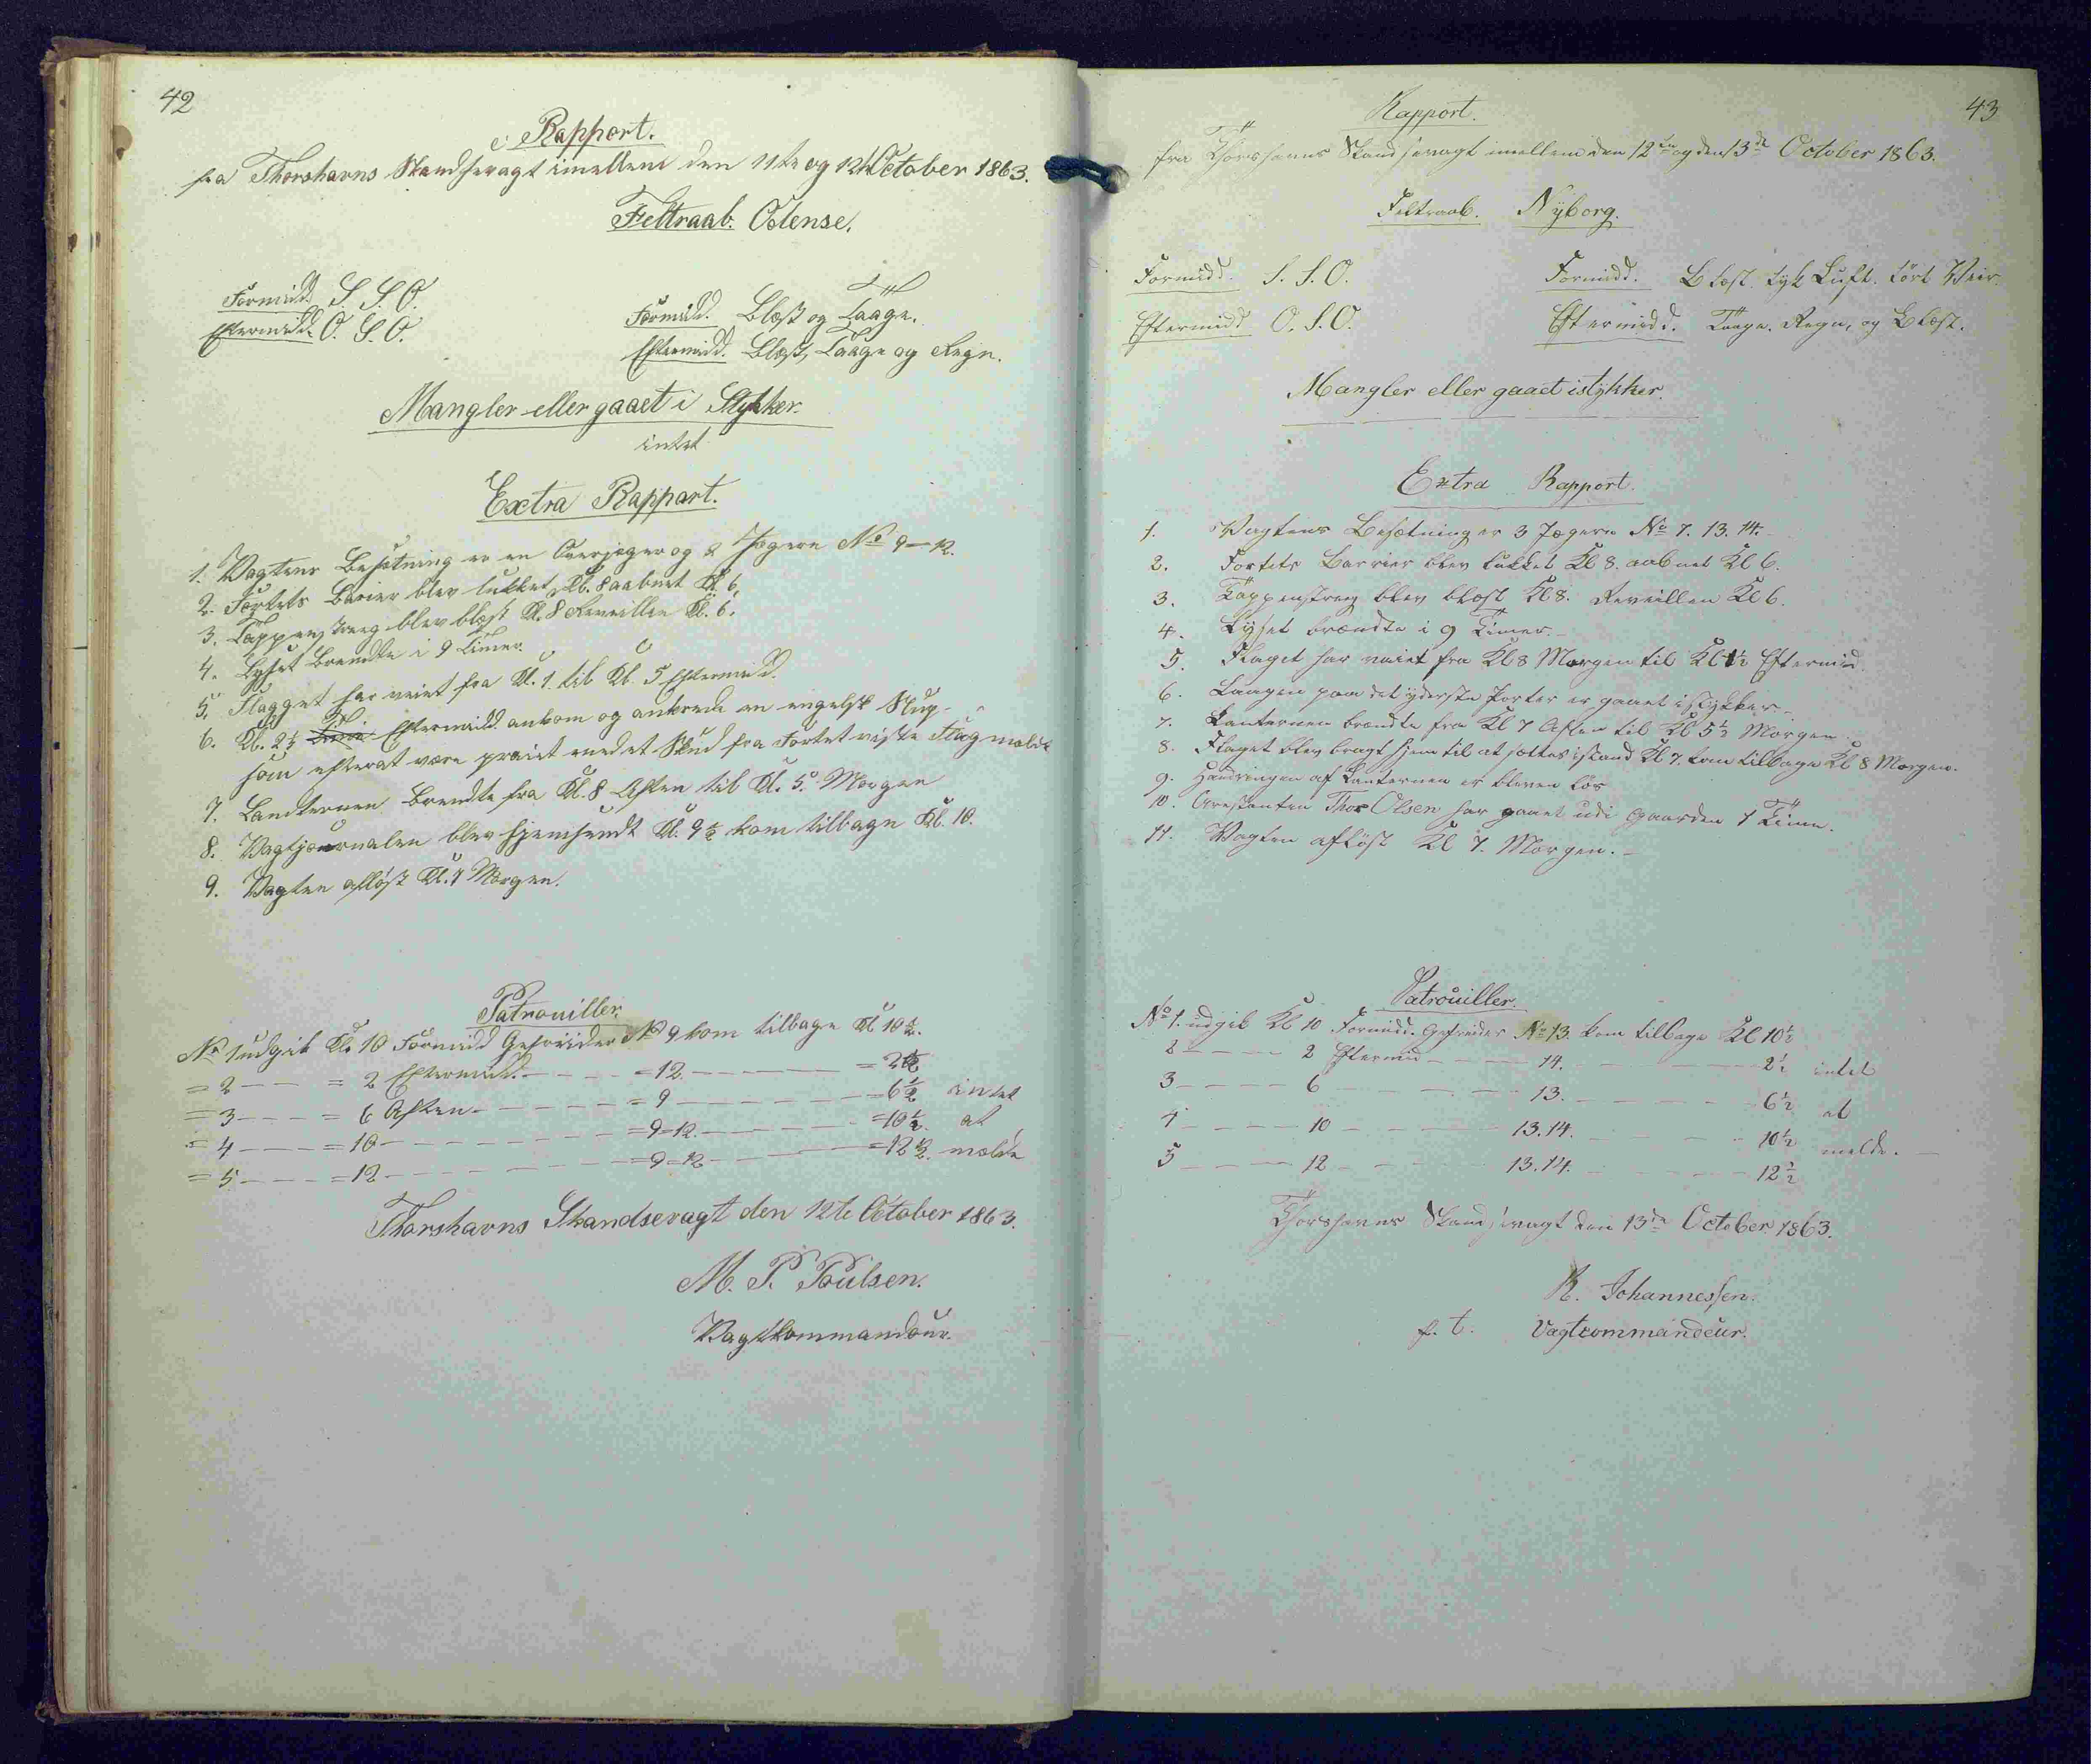 42
Rapport.
fra Thorshavns Skandsevagt imellem den 11te og 12te October 1863.
Feltraab. Odense.
Formidd. S. S. O.
Eftermidd. O. S. O.
Formidd. Blæst og Taage.
Eftermidd. Blæst, Taage og Regn.
Mangler eller gaaet i Stykker.
intet
Extra Rapport.
1. Vagtens Besætning er en Overjæger og 2 Jægere No 9-12.
2. Fortets Barier blev lukket Kl. 8 aabnet Kl. 6.
3. Tappenstreg blev blæst Kl. 8 Reveillen Kl. 6.
4. Lyset brændte i 9 Timer.
5. Flagget har veiet fra Kl. 1. til Kl. 5 Eftermidd.
6. Kl. 2½ Eftermidd. ankom og ankrede en engelsk Slup
som efterat være praiet med et Skud fra Fortet viste Flag
7. Landternen brændte fra Kl. 8 Aften til Kl. 5. Morgen
8. Vagtjournalen blev hjemsendt Kl. 9½ kom tilbage Kl. 10.
9. Vagten afløst Kl. 7 Morgen.
Patrouiller.
No 1 udgik Kl. 10 Formidd Gefreider No 9 kom tilbage Kl 10½.
= 2 - - = 2 Eftermidd. - - - =12. - - - =2½
= 3 - - - = 6 Aften - - - - =9 - - - - =6½ intet
= 4 - - =10 - - - - =9-12. - - - =10½. at
= 5 - - - =12 - - - - =9-12 - - - =12½. melde
Thorshavns Skandsevagt den 12te October 1863.
M. P. Poulsen.
Vagtkommandeur.
43
Rapport.
fra Thorshavns Skandsevagt imellem den 12te og den 13de October 1863.
Feltraab. Nyborg.
Formidd. S. S. O.
Eftermidd O. S. O.
Formidd. Blæst. tyk Luft. tört Veir.
Eftermidd. Taage. Regn, og Blæst.
Mangler eller gaaet istykker.
Extra Rapport.
1. Vagtens Besætning er 3 Jægere No 7. 13. 14.
2. Fortets Barrier blev lukket Kl 8. aabnet Kl 6.
3. Tappenstreg blev blæst Kl 8. Reveillen Kl 6.
4. Lyset brændte i 9 Timer.
5. Flaget har vaiet fra Kl 8 Morgen til Kl 1½ Eftermid.
6. Laagen paa det yderste Porter er gaaet istykker.
7. Lanternen brændte fra Kl 7 Aften til Kl 5½ Morgen.
8. Flaget blev bragt hjem til at sættes istand Kl 7. kom tilbage Kl 8 Morgen.
9. Haandringen af Lanternen er bleven lös
10. Arestanten Thos Olsen har gaaet udi Gaarden 1 Time.
11. Vagten aflöst Kl 7. Morgen.
Patrouiller.
No 1. udgik Kl 10 Formidd. Gefreider No 13. kom tilbage Kl 10½
2 - - - - 2 Eftermid - - - 14. - - - - 2½ intet
3 - - - - 6 - - - - 13. - - - - 6½ at
4 - - - - 10 - - - - 13.14. - - - - 10½ melde.
5 - - - - 12 - - - - 13.14. - - - - 12½
Thorshavns Skandsevagt den 13de October 1863.
K. Johannessen.
p. t. Vagtcommandeur.